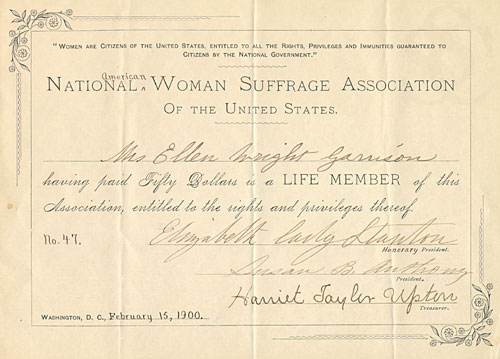 "Women are Citizens of the United States, entitled to all the Rights, Privileges and Immunities guaranteed to
Citizens by the National Government."
National American Woman Suffrage Association
Of the United States.
Mrs Ellen Wright Garrison
having paid Fifty Dollars is a LIFE MEMBER of this
Association, entitled to the rights and privileges thereof.
No. 47.
Elizabeth Cady Stanton
Honorary President.
Susan B. Anthony
President.
Harriet Taylor Upton
Treasurer.
Washington, D. C., February 15, 1900.